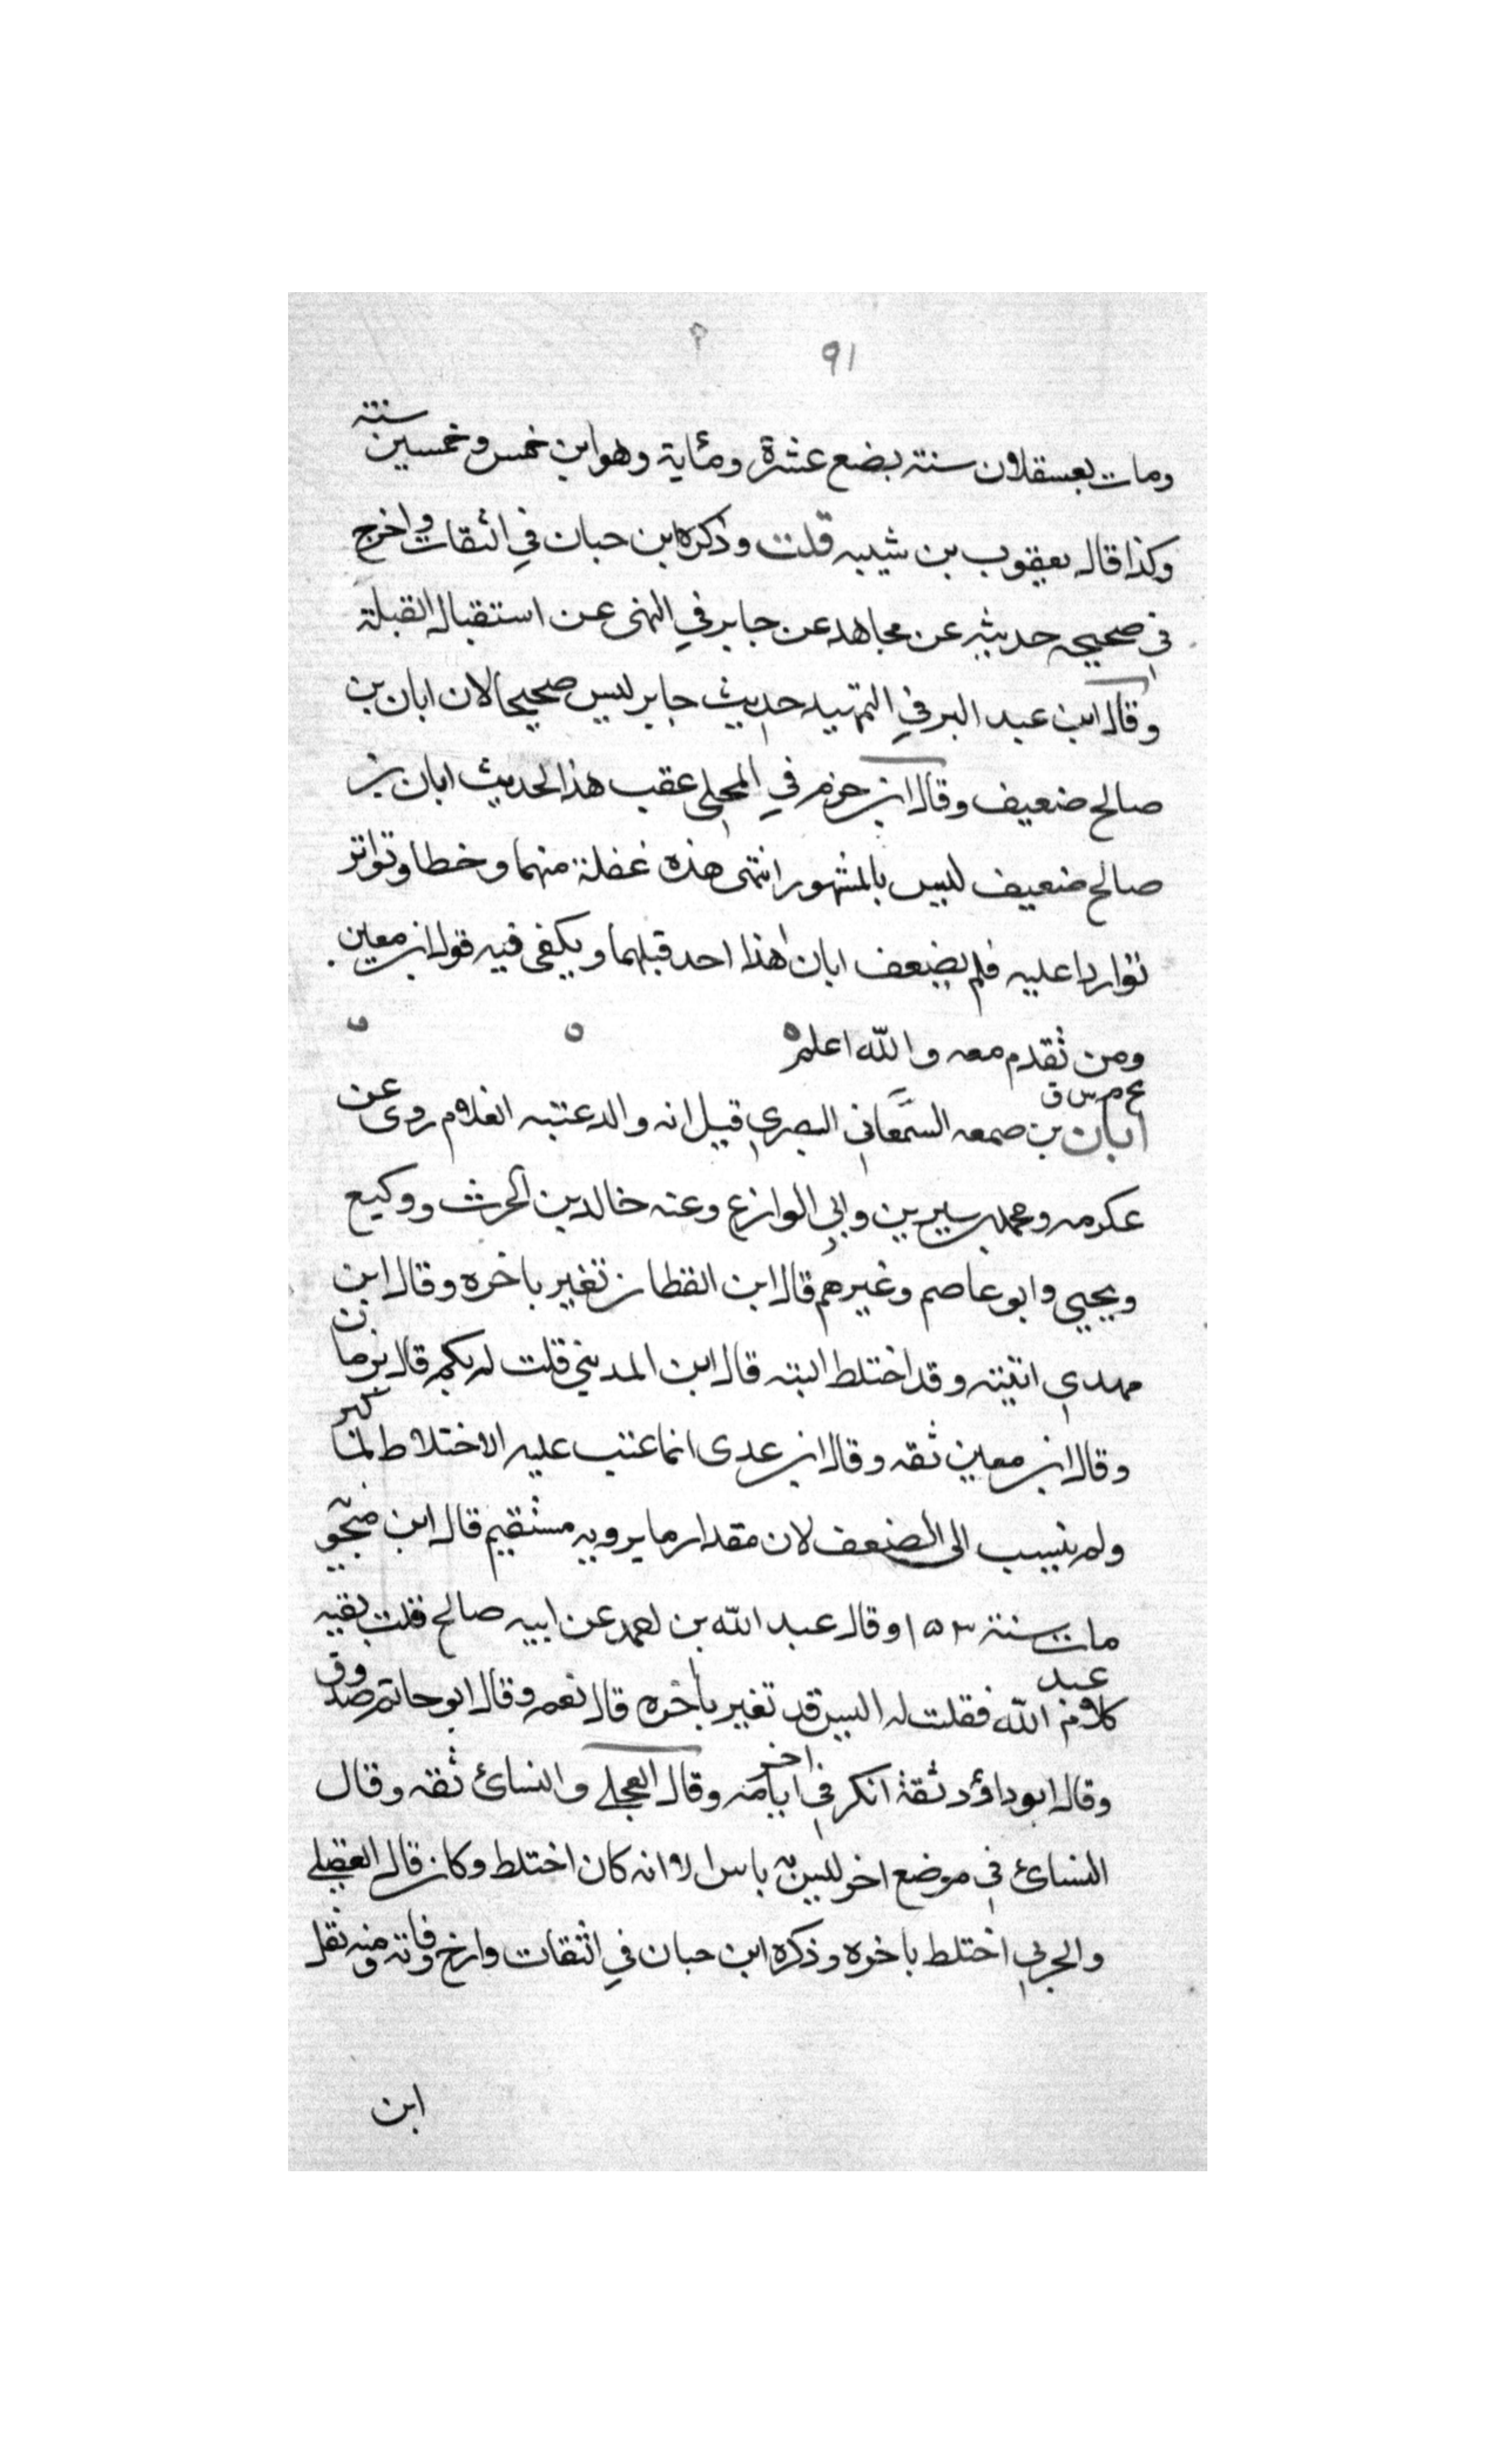 ٩١
ومات بعسقلان سنة بضع عشرة ومئاية وهو ابن خمس وخمسين سنة
وكذا قال يعقوب بن شيبه قلت وذكره ابن حبان في الثقات واخرج
في صحيحه حديثه عن مجاهد عن جابر في النهى عن استقبال القبلة
وقال ابن عبد البر في التمهيد حديث جابر ليس صحيحا لان ابان بن
صالح ضعيف وقال ابن حزم في المحلى عقب هذا الحديث ابان بن
صالح ضعيف ليس بالمشهور انتهى هذه غفلة منهما وخطا وتواتر
تواردا عليه فلم يضعف ابان هذا احد قبلهما ويكفى فيه قول ابن معين
ومن تقدم معه والله اعلم
بخ م س ق
ابان بن صمعه السمعاني البصري قيل انه والد عتبه الغلام روى عن
عكرمه ومحمد بن سيرين وابي الوازع وعنه خالد بن الحرث ووكيع
ويحيى وابو عاصم وغيرهم قال ابن القطان تغير باخره وقال ابن
مهدي اتيته وقد اختلط البته قال ابن المديني قلت له بكم قال بزمان
وقال ابن معين ثقه وقال ابن عدى انما عتب عليه الاختلاط لما كبر
ولم ينسب الى الضعف لان مقدار ما يرويه مستقيم قال ابن منجويه
مات سنة ١٥٣ وقال عبد الله بن احمد عن ابيه صالح قلت بقيه
كلام عبد الله فقلت له اليس قد تغير باخره قال نعم وقال ابو حاتم صدوق
وقال ابو داؤد ثقة انكر في اخر ايامه وقال العجلي والنسائ ثقه وقال
النسائ في موضع اخر ليس به باس الا انه كان اختلط وكان قال العقيلي
والحربي اختلط باخره وذكره ابن حبان في الثقات وارخ وفاته ومنه نقل
ابن